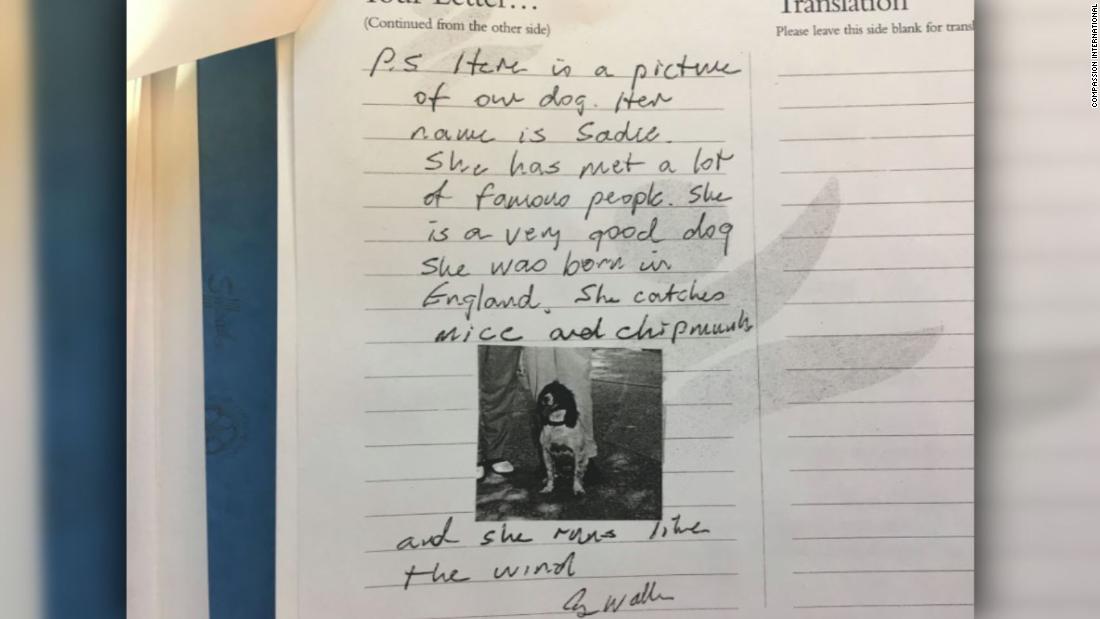 Your Letter…
(Continued from the other side)
P.S Here is a picture
of our dog. Her
name is Sadie.
She has met a lot
of famous people. She
is a very good dog
She was born in
England. She catches
mice and chipmunks
and she runs like
the wind
G Walker
Translation
Please leave this side blank for transl
COMPASSION INTERNATIONAL